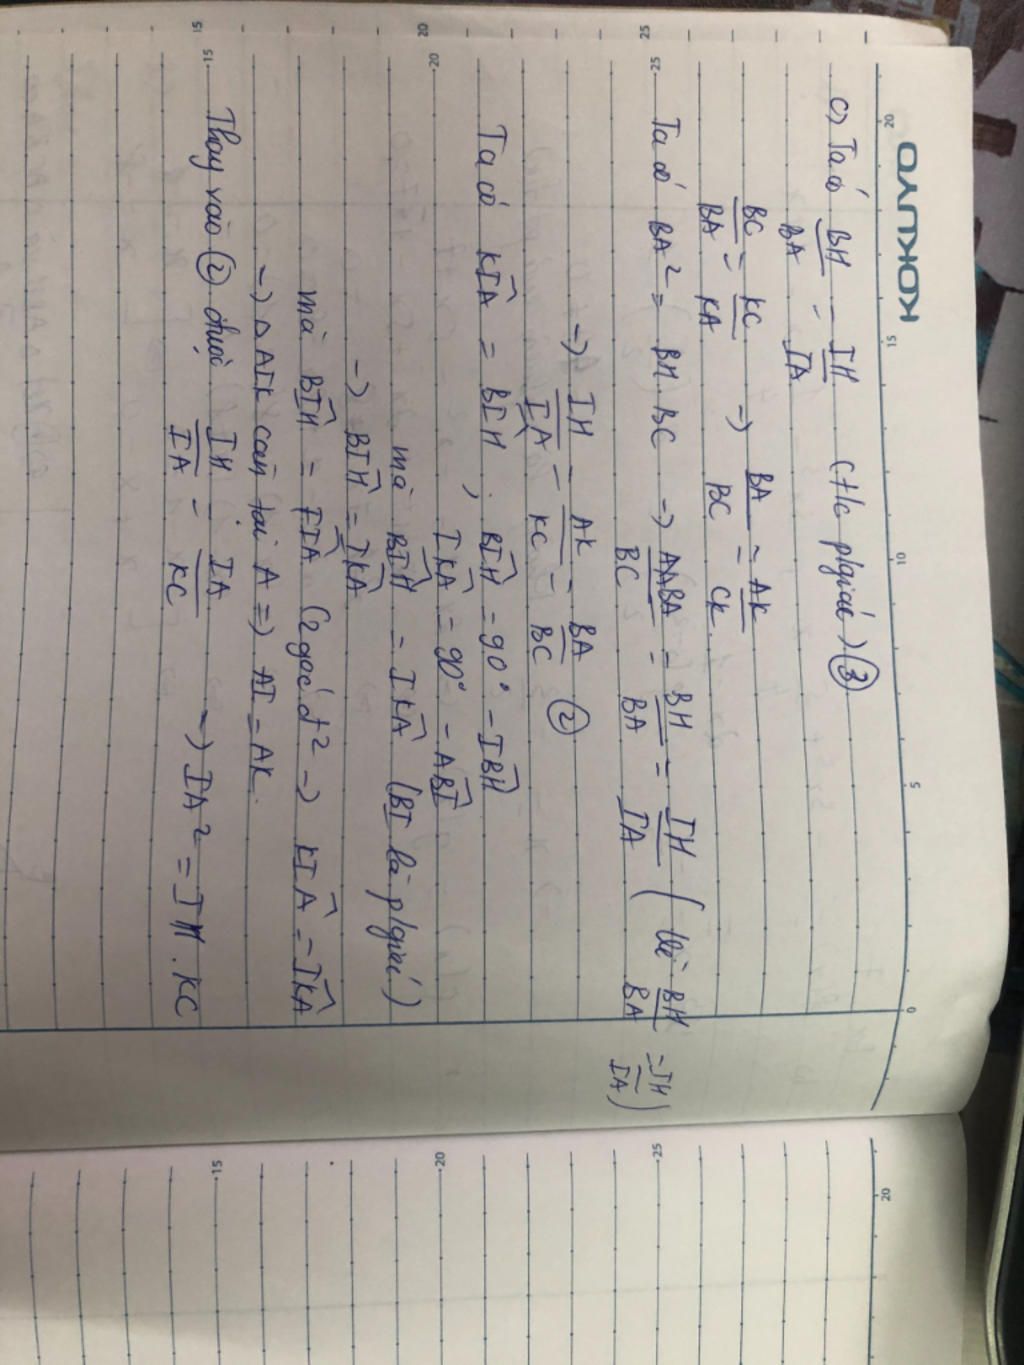 KOKUYO
20 15 10 5 0
c) Ta có BH/BA = IH/IA (t/c p/giác) ③
BC/BA = KC/KA → BA/BC = AK/CK
25
Ta có BA² = BH.BC → BA/BC = BH/BA = IH/IA ( BH/BA = IH/IA )
→ IH/IA = AK/KC = BA/BC ②
Ta có KIA = BIH , BIH = 90° - IBH
20
IKA = 90° - ABI
mà BIH = IKA (BI là p/giác)
→ BIH = IKA
mà BIH = KIA (2 góc đ² → KIA = IKA
→ △ AIK cân tại A => AI = AK.
15
Thay vào ② được IH/IA = IA/KC → IA² = IH . KC
20
25
20
15